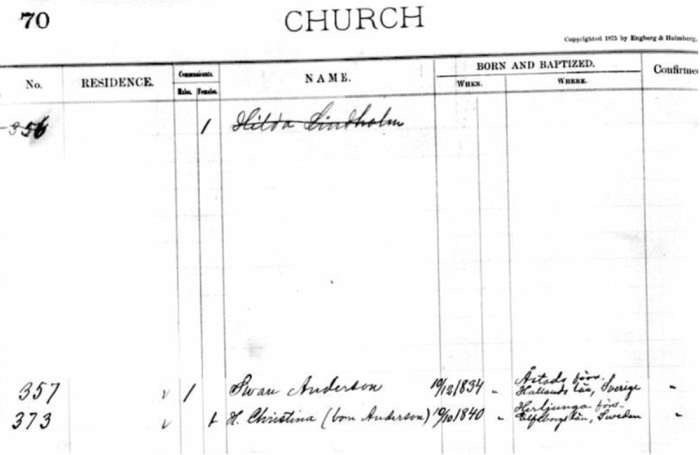 70 CHURCH
Copyrighted 1875 by Engberg & Holmberg.
No. RESIDENCE. Communicants. Males. Females. NAME. BORN AND BAPTIZED. WHEN. WHERE. Confirmed
356 1 Hilda Lindholm
357 v 1 Swan Anderson 19/12/1834 " Åstads förs. Hallands län, Sverige "
373 v 1 H. Christina (born Anderson) 19/10/1840 " Herljunga förs. Elfsborgs län, Sweden "